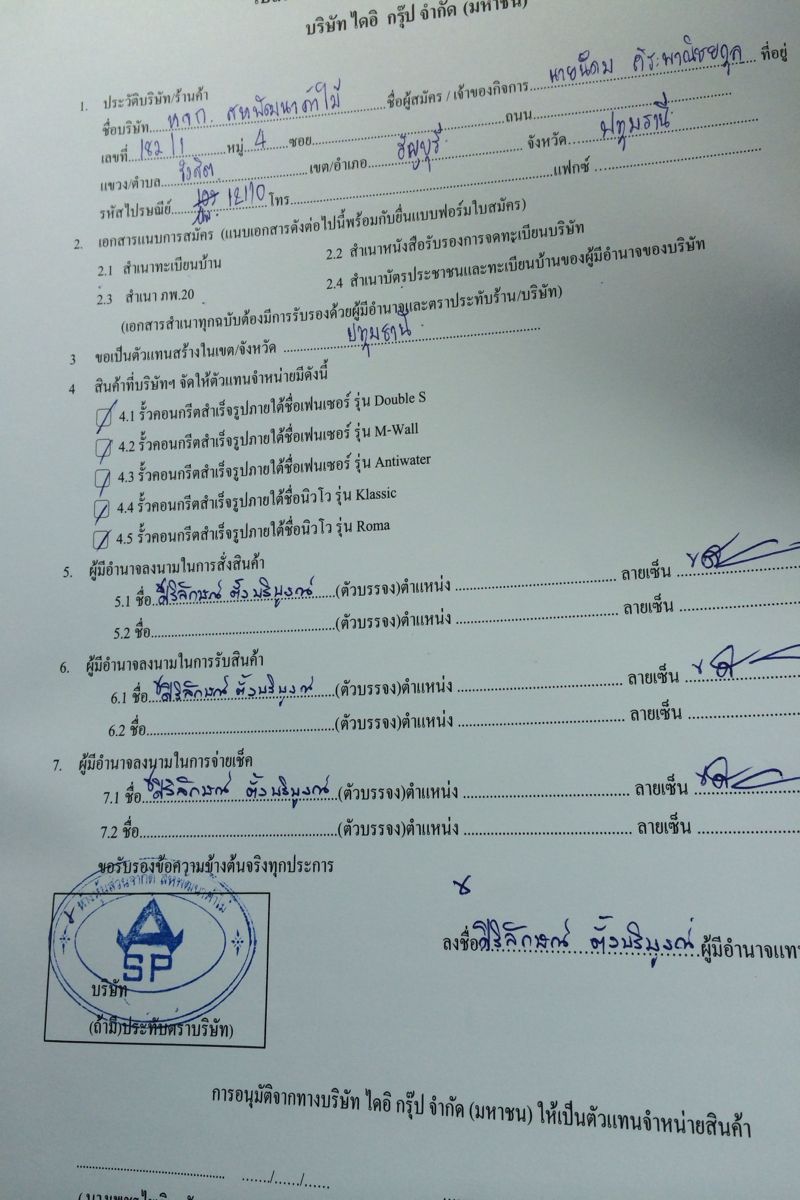 บริษัท ไดอิ กรุ๊ป จำกัด (มหาชน)
1. ประวัติบริษัท/ร้านค้า
ชื่อบริษัท หจก. สหพัฒนาค้าไม้ ชื่อผู้สมัคร / เจ้าของกิจการ นายนิคม ที่อยู่
เลขที่ 182/1 หมู่ 4 ซอย ถนน
แขวง/ตำบล รังสิต เขต/อำเภอ ธัญบุรี จังหวัด ปทุมธานี
รหัสไปรษณีย์ 12110 โทร แฟกซ์
2. เอกสารแนบการสมัคร (แนบเอกสารดังต่อไปนี้พร้อมกับยื่นแบบฟอร์มใบสมัคร)
2.1 สำเนาทะเบียนบ้าน 2.2 สำเนาหนังสือรับรองการจดทะเบียนบริษัท
2.3 สำเนา ภพ.20 2.4 สำเนาบัตรประชาชนและทะเบียนบ้านของผู้มีอำนาจของบริษัท
(เอกสารสำเนาทุกฉบับต้องมีการรับรองด้วยผู้มีอำนาจและตราประทับร้าน/บริษัท)
3 ขอเป็นตัวแทนสร้างในเขต/จังหวัด ปทุมธานี
4 สินค้าที่บริษัทฯ จัดให้ตัวแทนจำหน่ายมีดังนี้
4.1 รั้วคอนกรีตสำเร็จรูปภายใต้ชื่อเฟนเซอร์ รุ่น Double S
4.2 รั้วคอนกรีตสำเร็จรูปภายใต้ชื่อเฟนเซอร์ รุ่น M-Wall
4.3 รั้วคอนกรีตสำเร็จรูปภายใต้ชื่อเฟนเซอร์ รุ่น Antiwater
4.4 รั้วคอนกรีตสำเร็จรูปภายใต้ชื่อนิวโว รุ่น Klassic
4.5 รั้วคอนกรีตสำเร็จรูปภายใต้ชื่อนิวโว รุ่น Roma
5. ผู้มีอำนาจลงนามในการสั่งสินค้า
5.1 ชื่อ ศิริลักษณ์ ตั้งบริบูรณ์ (ตัวบรรจง)ตำแหน่ง ลายเซ็น
5.2 ชื่อ (ตัวบรรจง)ตำแหน่ง ลายเซ็น
6. ผู้มีอำนาจลงนามในการรับสินค้า
6.1 ชื่อ ศิริลักษณ์ ตั้งบริบูรณ์ (ตัวบรรจง)ตำแหน่ง ลายเซ็น
6.2 ชื่อ (ตัวบรรจง)ตำแหน่ง ลายเซ็น
7. ผู้มีอำนาจลงนามในการจ่ายเช็ค
7.1 ชื่อ ศิริลักษณ์ ตั้งบริบูรณ์ (ตัวบรรจง)ตำแหน่ง ลายเซ็น
7.2 ชื่อ (ตัวบรรจง)ตำแหน่ง ลายเซ็น
ขอรับรองข้อความข้างต้นจริงทุกประการ
ห้างหุ้นส่วนจำกัด สหพัฒนาค้าไม้
SP
ลงชื่อ ศิริลักษณ์ ตั้งบริบูรณ์ ผู้มีอำนาจแทน
บริษัท
(ถ้ามี)ประทับตราบริษัท)
การอนุมัติจากทางบริษัท ไดอิ กรุ๊ป จำกัด (มหาชน) ให้เป็นตัวแทนจำหน่ายสินค้า